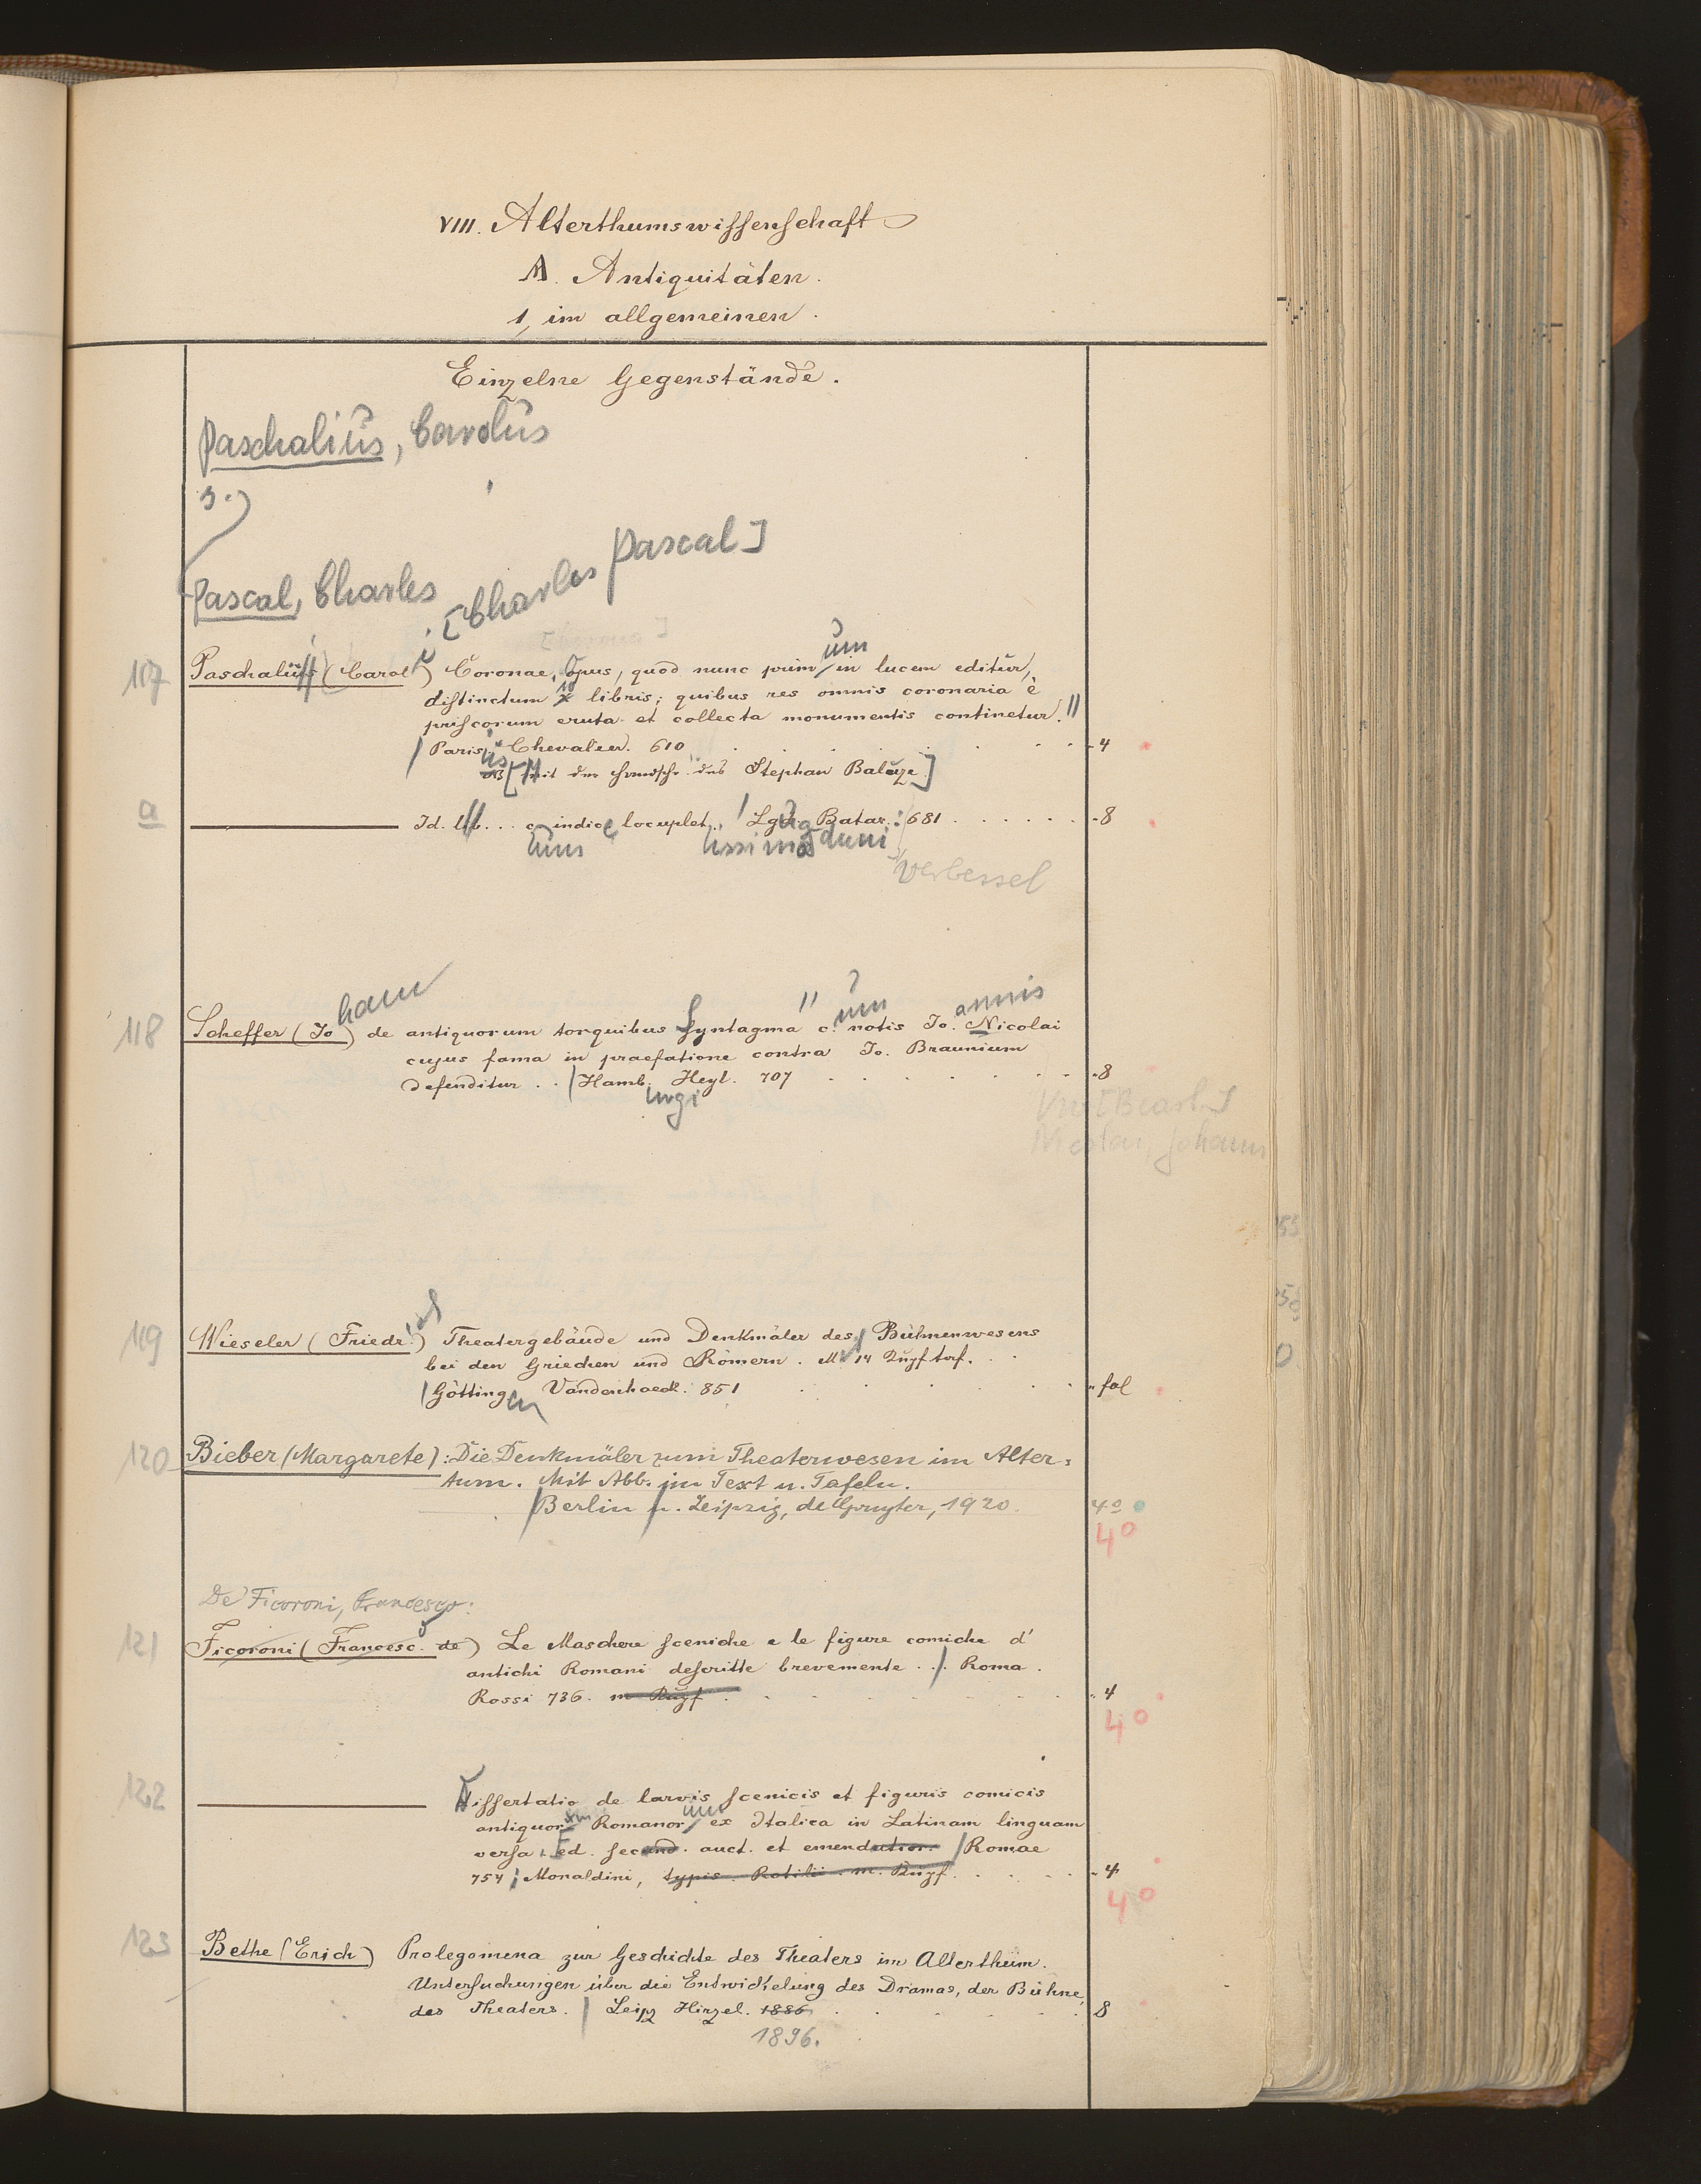 VIII. Alterthumswissenschaft
A. Antiquitäten.
1, im allgemeinen.
Einzelne Gegenstände.
Paschalius, Carolus
s.
Pascal, Charles [Charles Pascal]
117 Paschalius (Carol) Coronae, Opus, quod nunc primum in lucem editur,
distinctum X libris; quibus res omnis coronaria è
priscorum eruta et collecta monumentis continetur.
Parisiis Chevalier. 610 4
[Mit der Handschr. des Stephan Baluze]
a Id. lib... c. indice locuplet. Lgd. Batav. : 681 8
cum tissimo duni
Verbessel
hann um annis
118 Scheffer (Jo.) de antiquorum torquibus Syntagma c. notis Jo. Nicolai
cujus fama in praefatione contra Jo. Braunium
defenditur .. Hamb. Heyl. 707 8
urgi
Nicolai, Johann
119 Wieseler (Friedr.) Theatergebäude und Denkmäler des Bühnenwesens
bei den Griechen und Römern. M. 14 Kupftaf.
Göttingen Vandenhoeck. 851 fol
120 Bieber (Margarete): Die Denkmäler zum Theaterwesen im Alter-
tum. Mit Abb. im Text u. Tafeln.
Berlin u. Leipzig, de Gruyter, 1920. 4º
4º
De Ficoroni, Francesco:
121 Ficoroni (Francesc. de) Le Maschere sceniche e le figure comiche d'
antichi Romani descritte brevemente ... Roma.
Rossi 736. m Kupf. 4
4º
122 Dissertatio de larvis scenicis et figuris comicis
antiquor. Romanor. ex Italica in Latinam linguam
versa. Ed. secund. auct. et emendatior. Romae
754; Monaldini, typis Rotilii m. Kupf. 4
4º
123 Bethe (Erich) Prolegomena zur Geschichte des Theaters im Alterthum.
Untersuchungen über die Entwickelung des Dramas, der Bühne,
des Theaters. Leipz Hirzel. 1886 8
1896.